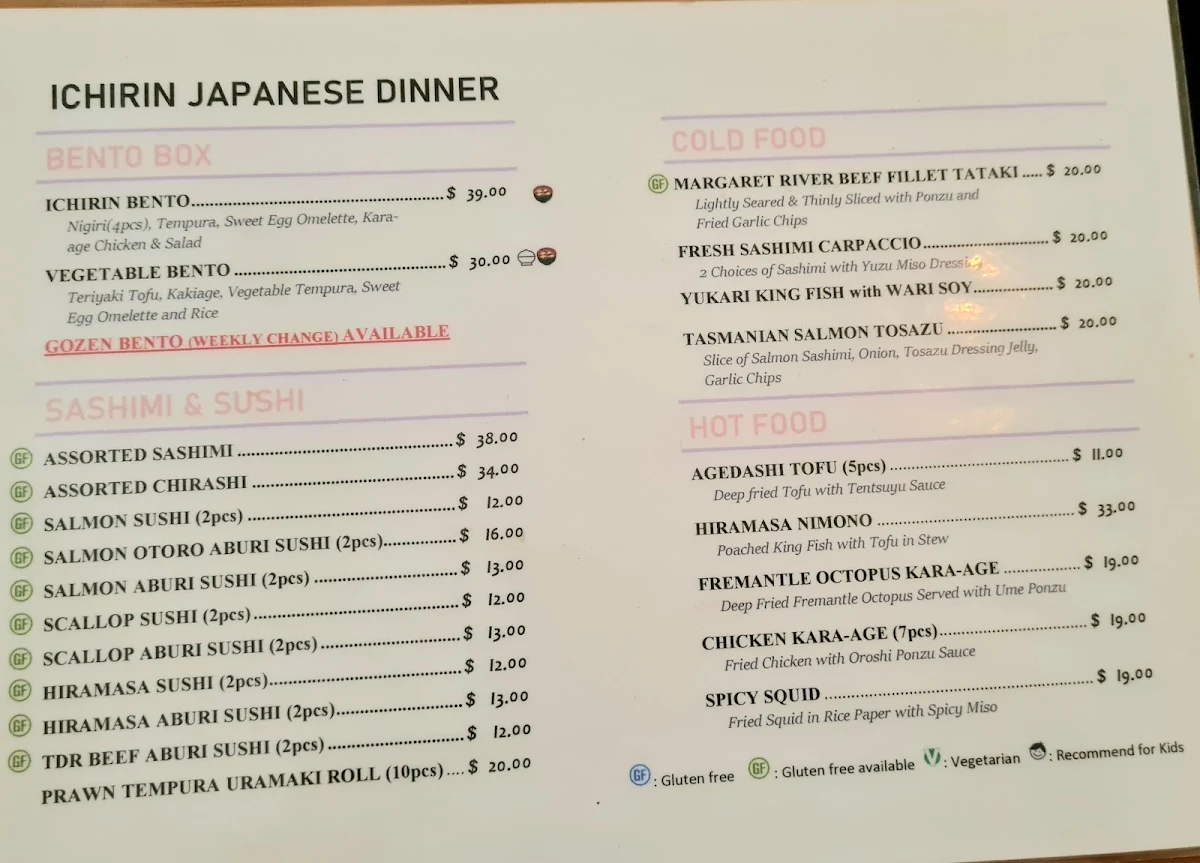 ICHIRIN JAPANESE DINNER
BENTO BOX
ICHIRIN BENTO.......................................................$ 39.00
Nigiri(4pcs), Tempura, Sweet Egg Omelette, Kara-
age Chicken & Salad
VEGETABLE BENTO ..............................................$ 30.00
Teriyaki Tofu, Kakiage, Vegetable Tempura, Sweet
Egg Omelette and Rice
GOZEN BENTO (WEEKLY CHANGE) AVAILABLE
SASHIMI & SUSHI
GF ASSORTED SASHIMI ..............................................$ 38.00
GF ASSORTED CHIRASHI ...........................................$ 34.00
GF SALMON SUSHI (2pcs) ............................................$ 12.00
GF SALMON OTORO ABURI SUSHI (2pcs)................$ 16.00
GF SALMON ABURI SUSHI (2pcs) ..............................$ 13.00
GF SCALLOP SUSHI (2pcs)...........................................$ 12.00
GF SCALLOP ABURI SUSHI (2pcs).............................$ 13.00
GF HIRAMASA SUSHI (2pcs).......................................$ 12.00
GF HIRAMASA ABURI SUSHI (2pcs)..........................$ 13.00
GF TDR BEEF ABURI SUSHI (2pcs)............................$ 12.00
PRAWN TEMPURA URAMAKI ROLL (10pcs)....$ 20.00
COLD FOOD
GF MARGARET RIVER BEEF FILLET TATAKI .....$ 20.00
Lightly Seared & Thinly Sliced with Ponzu and
Fried Garlic Chips
FRESH SASHIMI CARPACCIO...........................$ 20.00
2 Choices of Sashimi with Yuzu Miso Dressing
YUKARI KING FISH with WARI SOY.................$ 20.00
TASMANIAN SALMON TOSAZU .......................$ 20.00
Slice of Salmon Sashimi, Onion, Tosazu Dressing Jelly,
Garlic Chips
HOT FOOD
AGEDASHI TOFU (5pcs) .......................................$ 11.00
Deep fried Tofu with Tentsuyu Sauce
HIRAMASA NIMONO ...........................................$ 33.00
Poached King Fish with Tofu in Stew
FREMANTLE OCTOPUS KARA-AGE .................$ 19.00
Deep Fried Fremantle Octopus Served with Ume Ponzu
CHICKEN KARA-AGE (7pcs)................................$ 19.00
Fried Chicken with Oroshi Ponzu Sauce
SPICY SQUID ..........................................................$ 19.00
Fried Squid in Rice Paper with Spicy Miso
GF : Gluten free GF : Gluten free available V : Vegetarian : Recommend for Kids